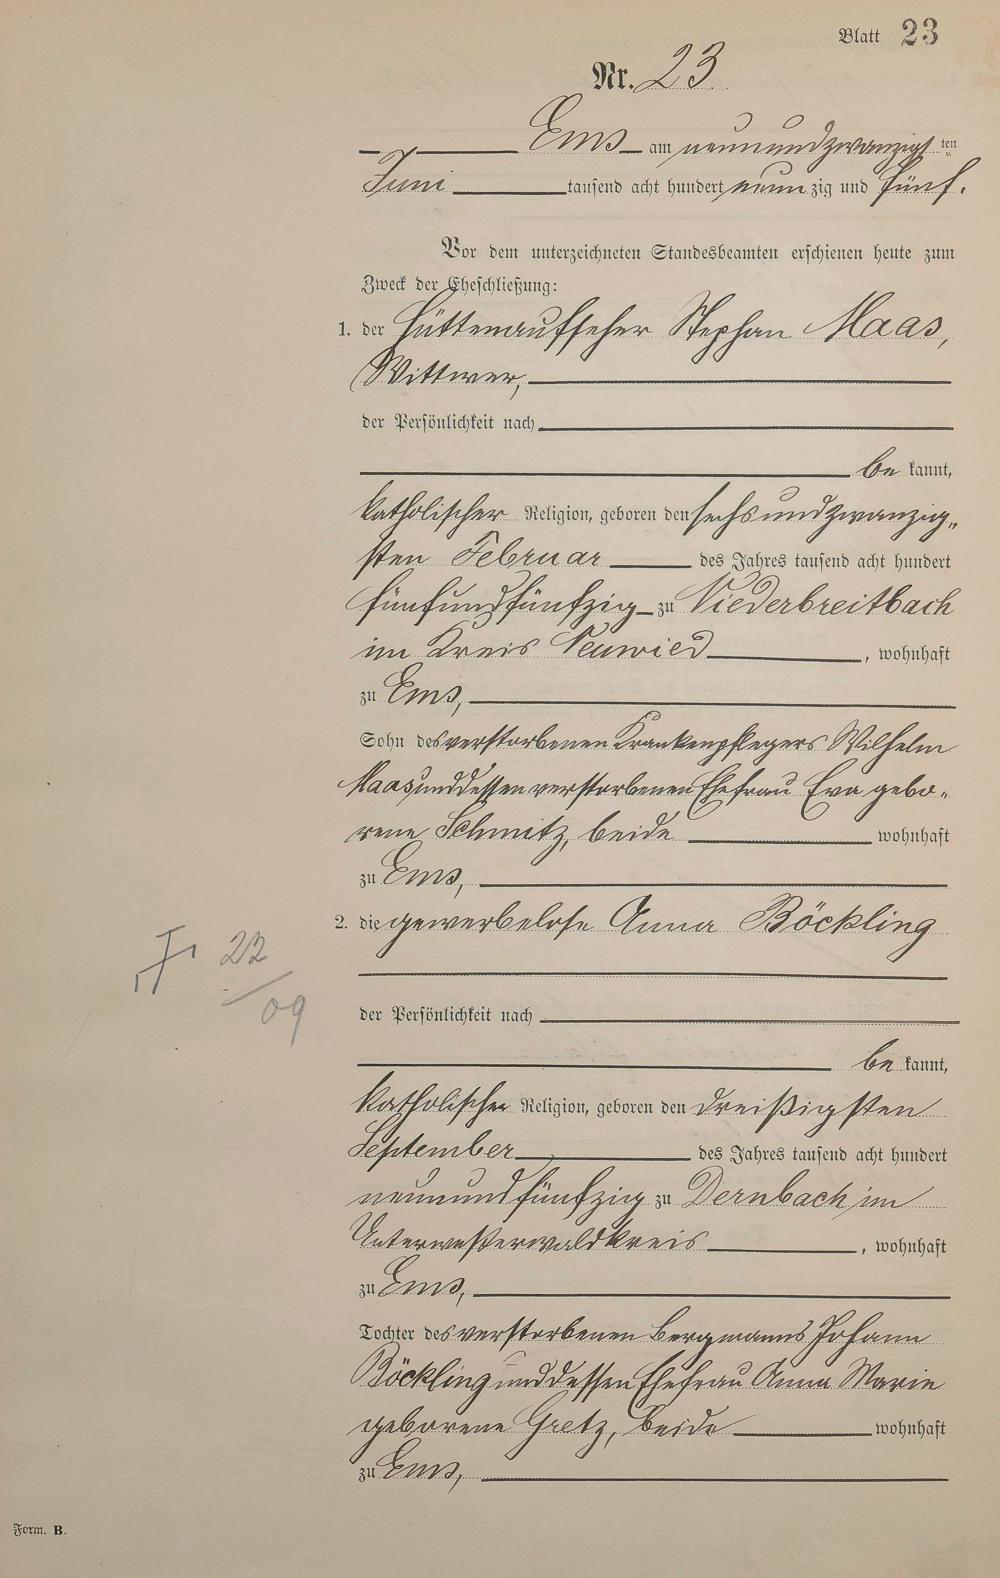 Blatt 23
Nr. 23.
Ems am neunundzwanzigsten
Juni tausend acht hundert neunzig und fünf.
Vor dem unterzeichneten Standesbeamten erschienen heute zum
Zweck der Eheschließung:
1. der Hüttenaufseher Stephan Maas,
Wittwer,
der Persönlichkeit nach
be kannt,
katholischer Religion, geboren den sechsundzwanzig„
sten Februar des Jahres tausend acht hundert
fünfundfünfzig zu Niederbreitbach
im Kreis Neuwied, wohnhaft
zu Ems,
Sohn des verstorbenen Krankenpflegers Wilhelm
Maas und dessen verstorbenen Ehefrau Eva gebo„
rene Schmitz, beide wohnhaft
zu Ems,
2. die gewerbelose Anna Böckling
F 22
/09
der Persönlichkeit nach
be kannt,
katholischer Religion, geboren den dreißigsten
September des Jahres tausend acht hundert
neunundfünfzig zu Dernbach im
Unterwesterwaldkreis, wohnhaft
zu Ems,
Tochter des verstorbenen Bergmanns Johann
Böckling und dessen Ehefrau Anna Marie
geborene Gretz, beide wohnhaft
zu Ems,
Form. B.